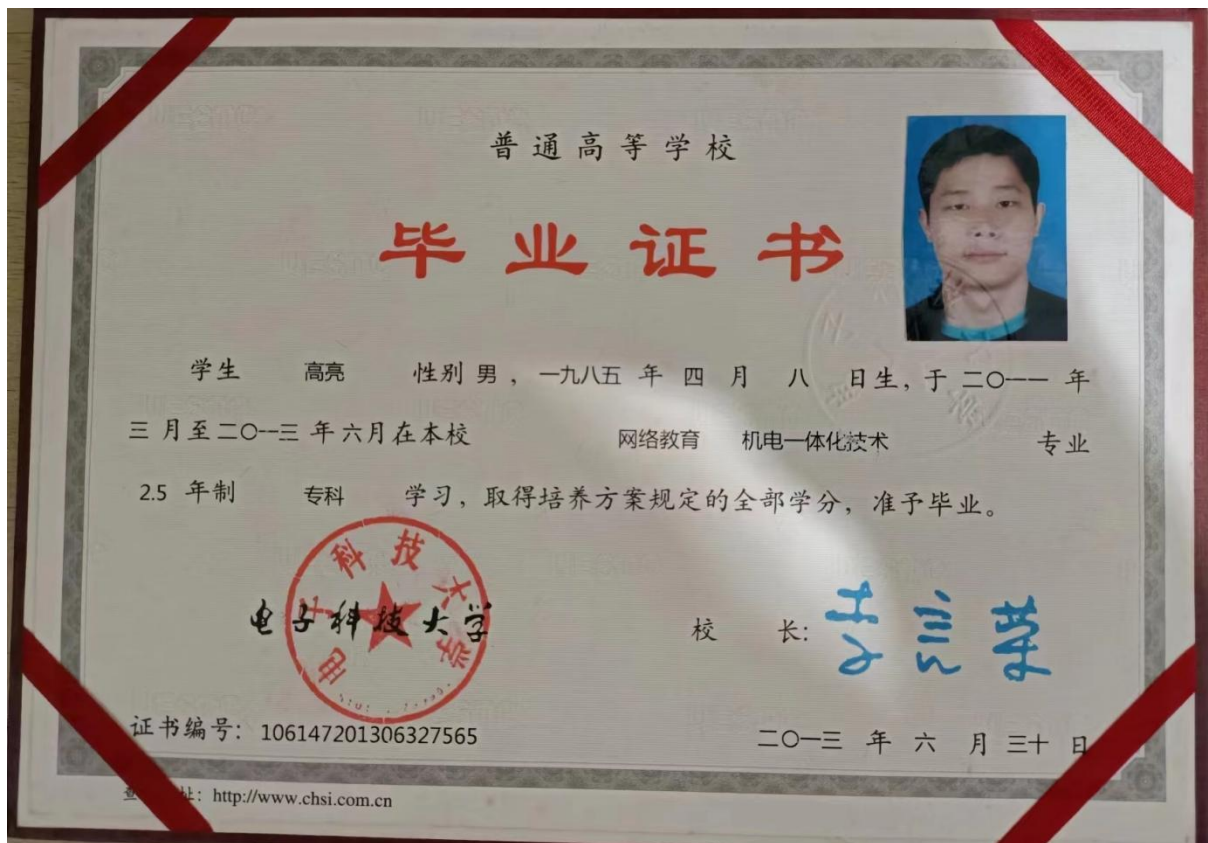 普通高等学校
毕业证书
学生 高亮 性别 男 ， 一九八五 年 四 月 八 日生，于 二〇一一 年
三 月至二〇一三 年六月在本校 网络教育 机电一体化技术 专业
2.5 年制 专科 学习，取得培养方案规定的全部学分，准予毕业。
电子科技大学
电子科技大学
校 长：
证书编号：106147201306327565
二〇一三 年 六 月 三十 日
址：http://www.chsi.com.cn